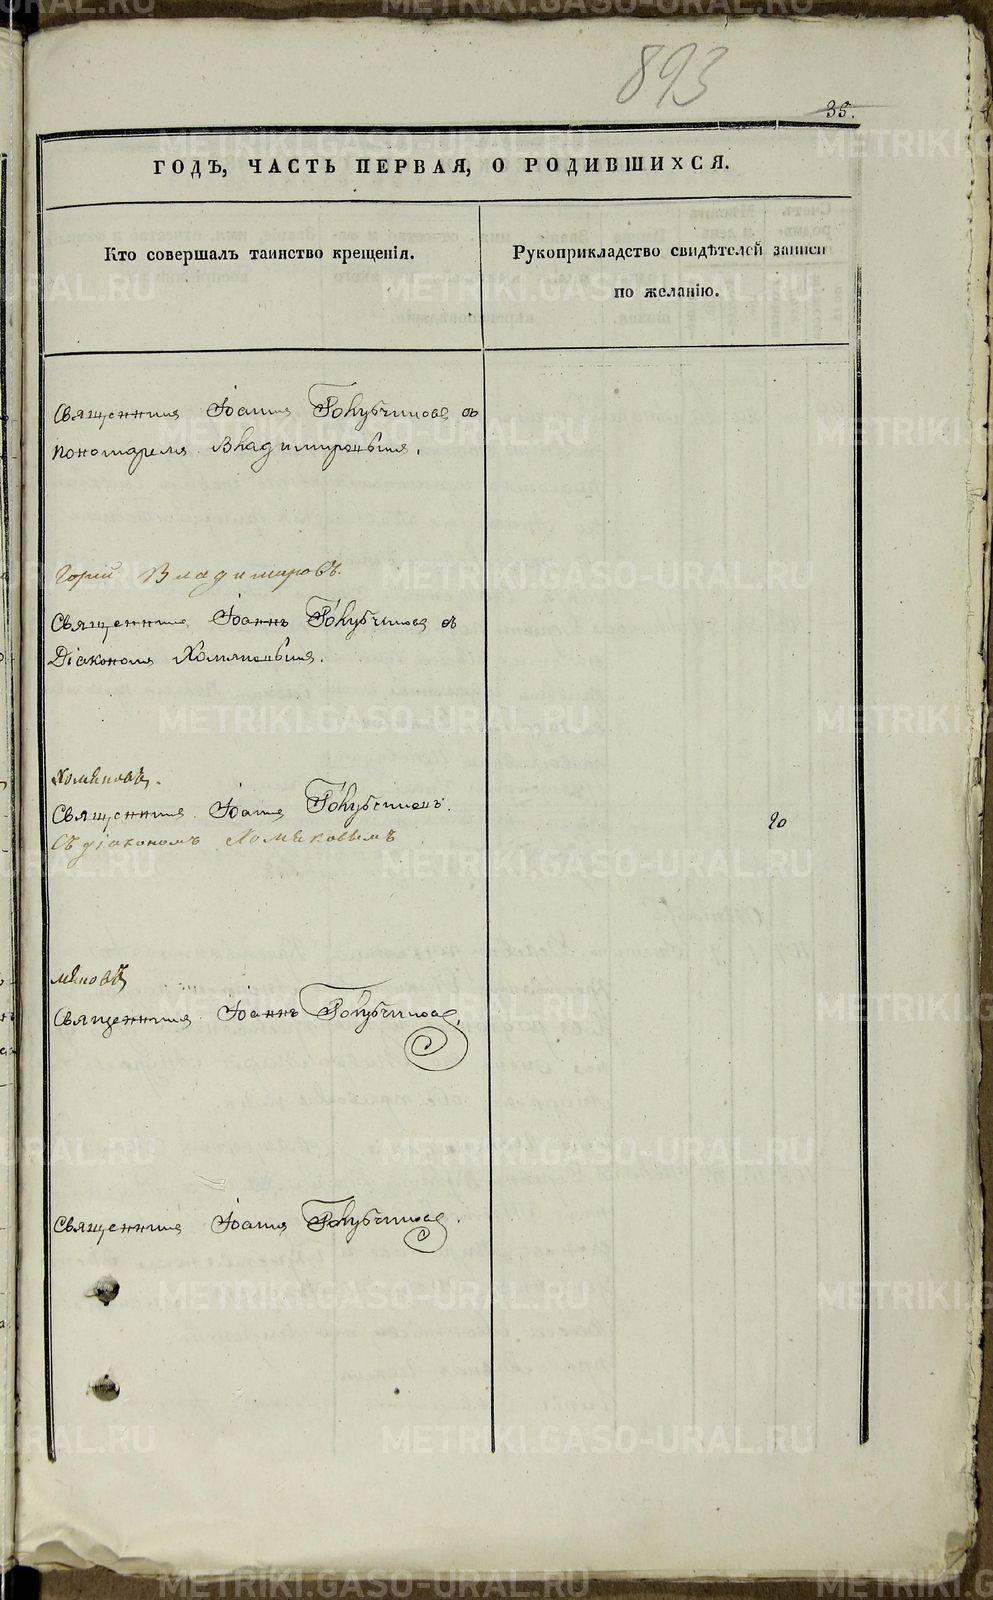 893
35.
ГОДЪ, ЧАСТЬ ПЕРВАЯ, О РОДИВШИХСЯ.
Кто совершалъ таинство крещенія.
Рукоприкладство свидѣтелей записи
по желанію.
Священникъ Іоаннъ Голубчиковъ съ
пономаремъ Владимировымъ.
Владимировъ.
Священникъ Іоаннъ Голубчиковъ съ
Діакономъ Хомяковымъ.
Хомяковъ.
Священникъ Іоаннъ Голубчиковъ.
Съ діакономъ Хомяковымъ
20
мяковъ
Священникъ Іоаннъ Голубчиковъ.
Священникъ Іоаннъ Голубчиковъ.
METRIKI.GASO-URAL.RU